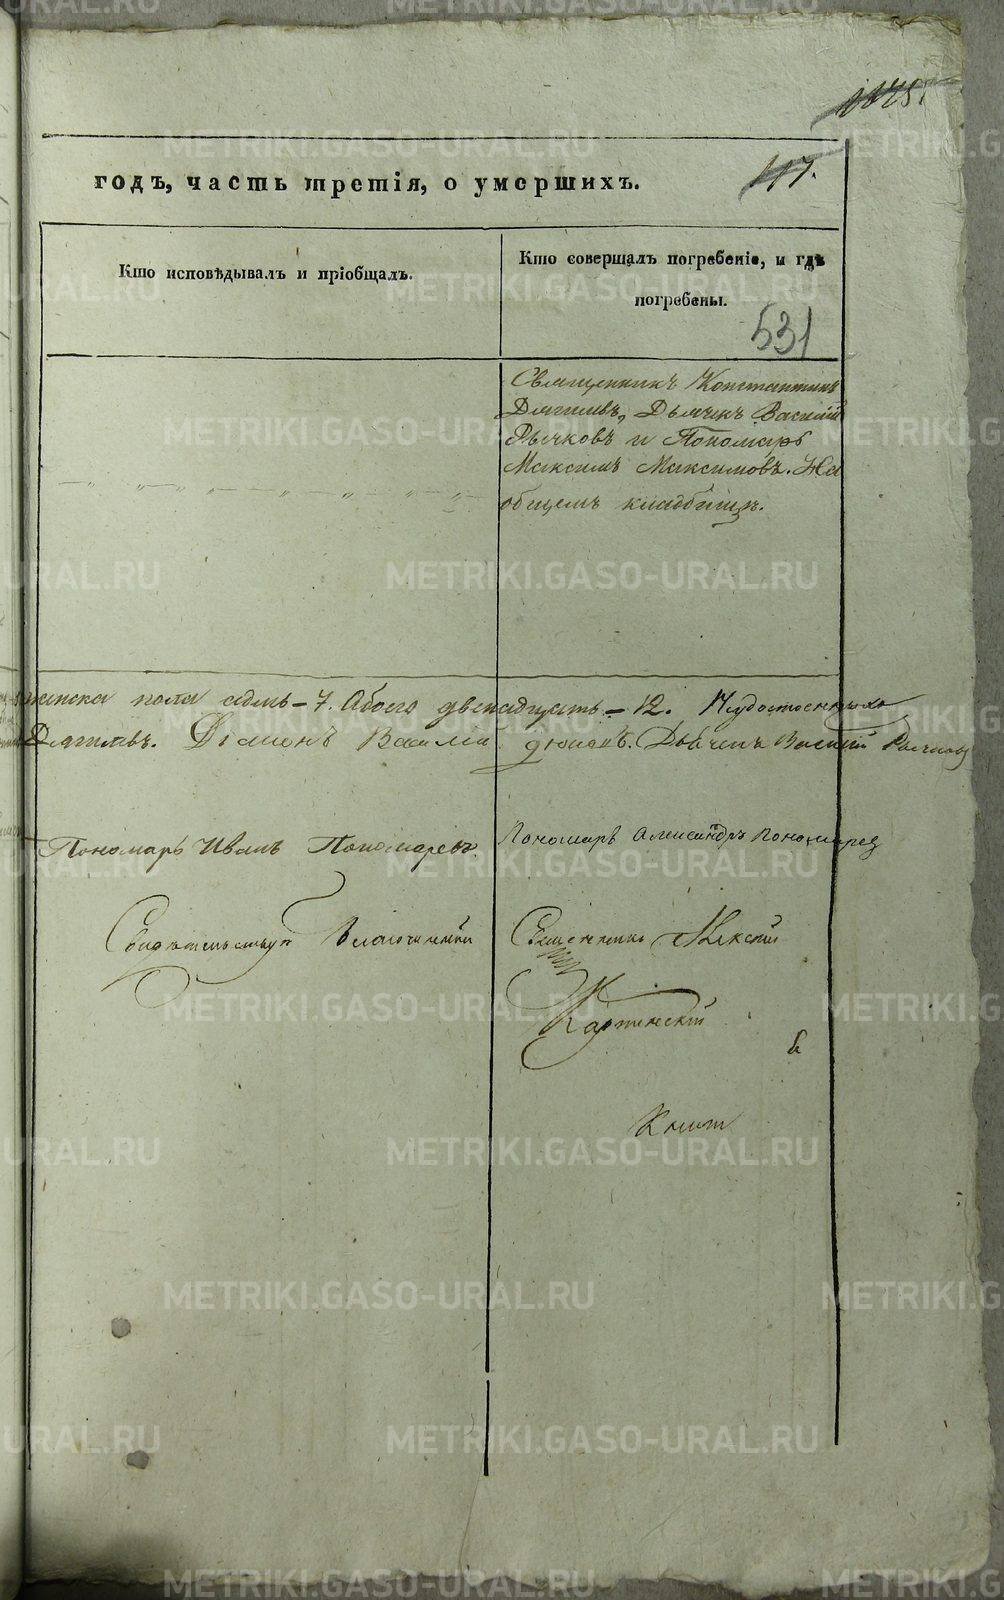 117.
годъ, часть третія, о умершихъ.
Кто исповѣдывалъ и пріобщалъ.
Кто совершалъ погребеніе, и гдѣ
погребены.
531
Священникъ Константинъ
Дягилевъ, Дьячекъ Василій
Рычковъ и Пономарь
Максимъ Максимовъ. На
общемъ кладбищѣ.
женска пола седмь - 7. Обоего двенадцать - 12.
Дягилевъ. Діаконъ Василій Дьячекъ Василій Рычковъ
Пономарь Иванъ Пономаревъ.
Пономарь Александръ Пономарев
Свидѣтельствуетъ Благочинный
Священникъ
METRIKI.GASO-URAL.RU